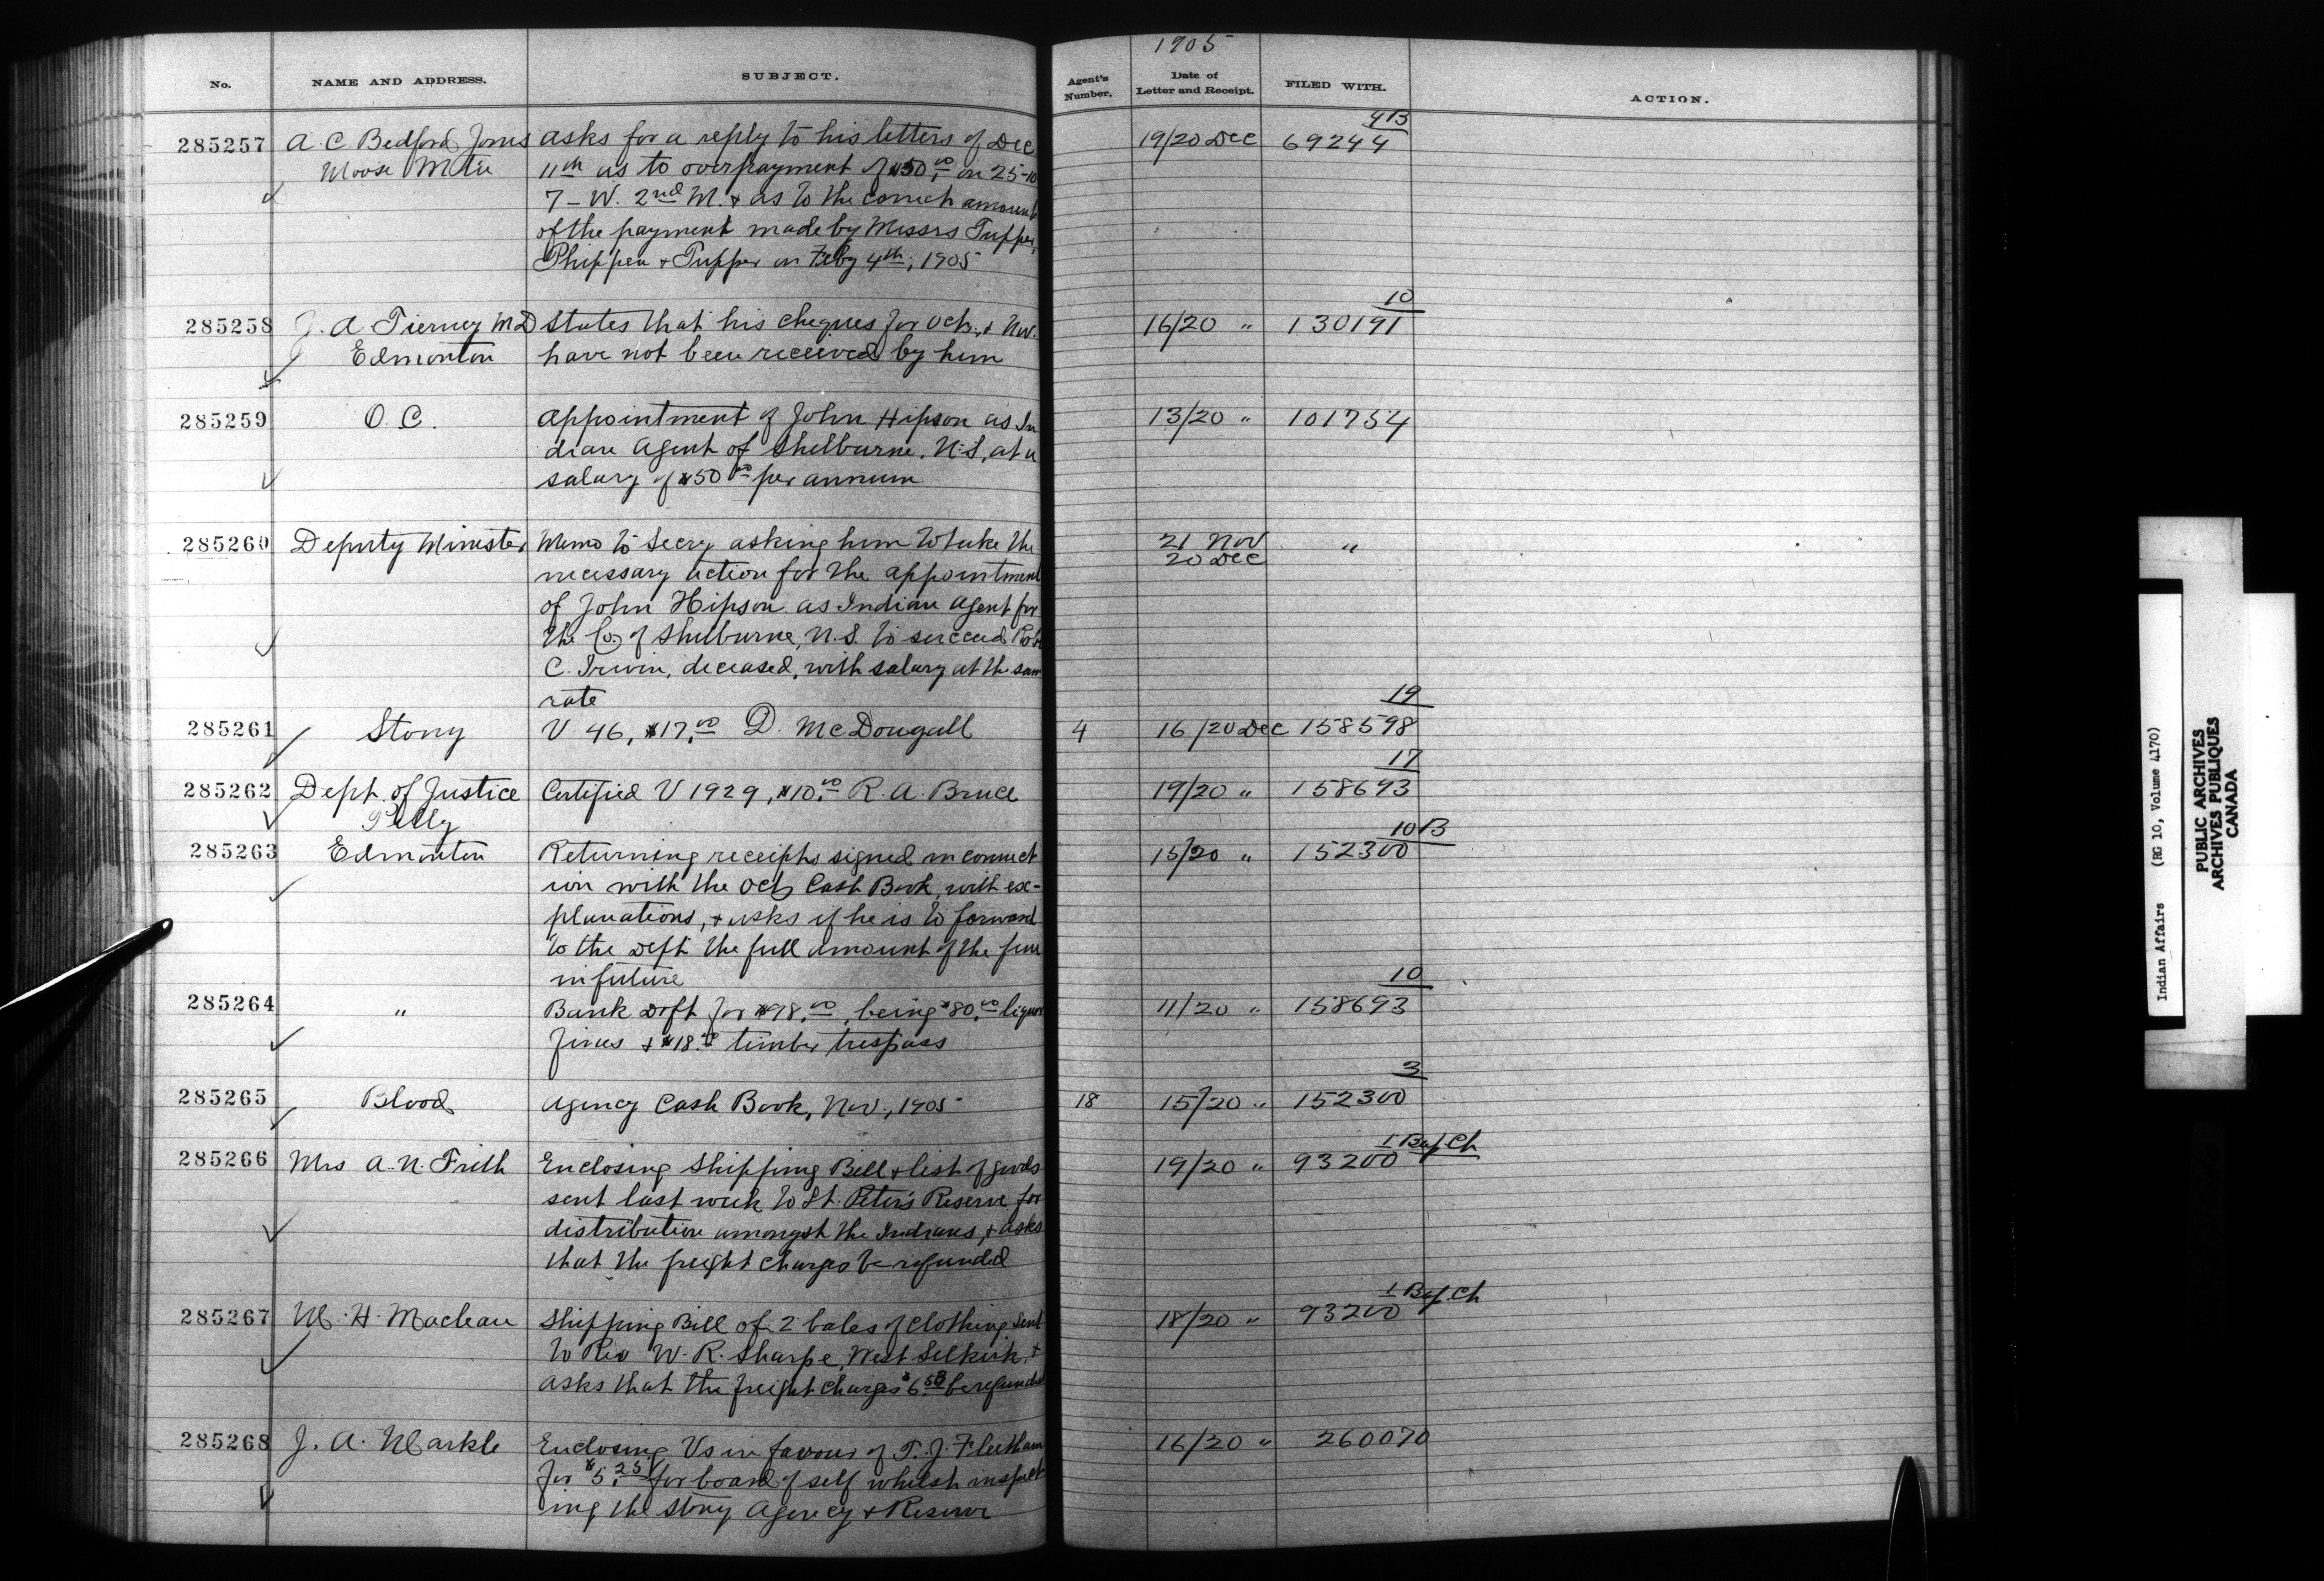 1905
No. NAME AND ADDRESS. SUBJECT. Agent's Number. Date of Letter and Receipt. FILED WITH. ACTION.
4B
285257 A. C. Bedford Jones asks for a reply to his letters of Dec 19/20 Dec 69244
Moose Mtn 11th as to overpayment of $50.00 on 25-10
7 - W. 2nd M. & as to the correct amount
of the payment made by Messrs Tupper,
Phippen & Tupper on Feby 4th, 1905
10
285258 J. A. Tierney M.D States that his cheques for Oct. & Nov. 16/20 " 130191
Edmonton have not been received by him
285259 O. C. Appointment of John Hipson as In 13/20 " 101754
dian Agent of Shelburne, N.S, at a
salary of $50 00 per annum
285260 Deputy Minister Memo to Secry asking him to take the 21 Nov "
20 Dec
necessary action for the appointment
of John Hipson as Indian Agent for
the Co. of Shelburne, N.S. to succeed Robt
C. Irwin, deceased, with salary at the same
rate
19
285261 Stony V 46, $17.00 D. McDougall 4 16/20 Dec 158598
17
285262 Dept. of Justice Certified V 1929, $10.00 R. A. Bruce 19/20 " 158693
Pelly
10 B
285263 Edmonton Returning receipts signed in connect 15/20 " 152300
ion with the Oct Cash Book, with ex-
planations, & asks if he is to forward
to the Dept the full amount of the fine
in future
10
285264 " Bank Dft for $98.00, being $80.00 liquor 11/20 " 158693
fines & $18.00 timber trespass
3
285265 Blood Agency Cash Book, Nov., 1905 18 15/20 " 152300
1 Baf. Ch
285266 Mrs A. N. Frith Enclosing Shipping Bill & list of goods 19/20 " 93200
sent last week to St. Peter's Reserve for
distribution amongst the Indians, & asks
that the freight charges be refunded
1 Baf. Ch
285267 M. H. Maclean Shipping Bill of 2 bales of clothing sent 18/20 " 93200
to Rev W. R. Sharpe, West Selkirk, &
asks that the freight charges $6.58 be refunded
285268 J. A. Markle Enclosing Vs in favour of T. J. Fleetham 16/20 " 260070
for $5.25 for board of self whilst inspect
ing the Stony Agency & Reserve
Indian Affairs (RG 10, Volume 4170)
PUBLIC ARCHIVES
ARCHIVES PUBLIQUES
CANADA